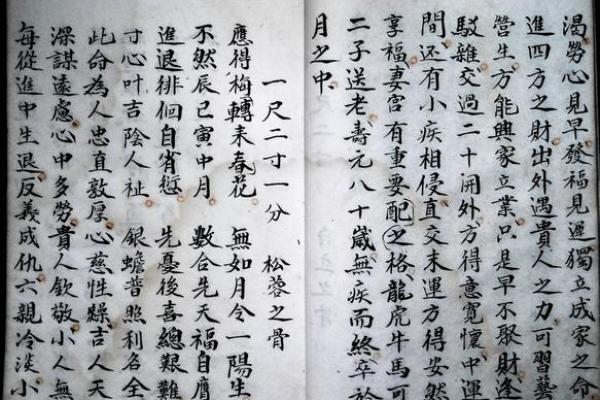 渴勞心見早發福見遲獨立成家之命
進四方之財出外遇貴人之力可習藝
營生方能興家立業只是早不聚財逢
駁雜交過二十開外方得意寬懷中運
間还有小疾相侵直交末運方得安然
享福妻宮有重要配之格龍虎牛馬可
二子送老壽元八十歲無疾而終卒於
月之中
一尺二寸一分 松蓉之骨
應得梅轉耒春花 無如月令一陽生
不然辰巳寅中月 數合先天福自膺
進退徘徊自省愆 先憂後喜總艱難
寸心叶吉陰人祉 銀蟾普照利名全
此命為人忠直敦厚心慈性躁吉人天
深謀遠慮心中多勞貴人欽敬小人無
每從進中生退反義成仇六親冷淡小